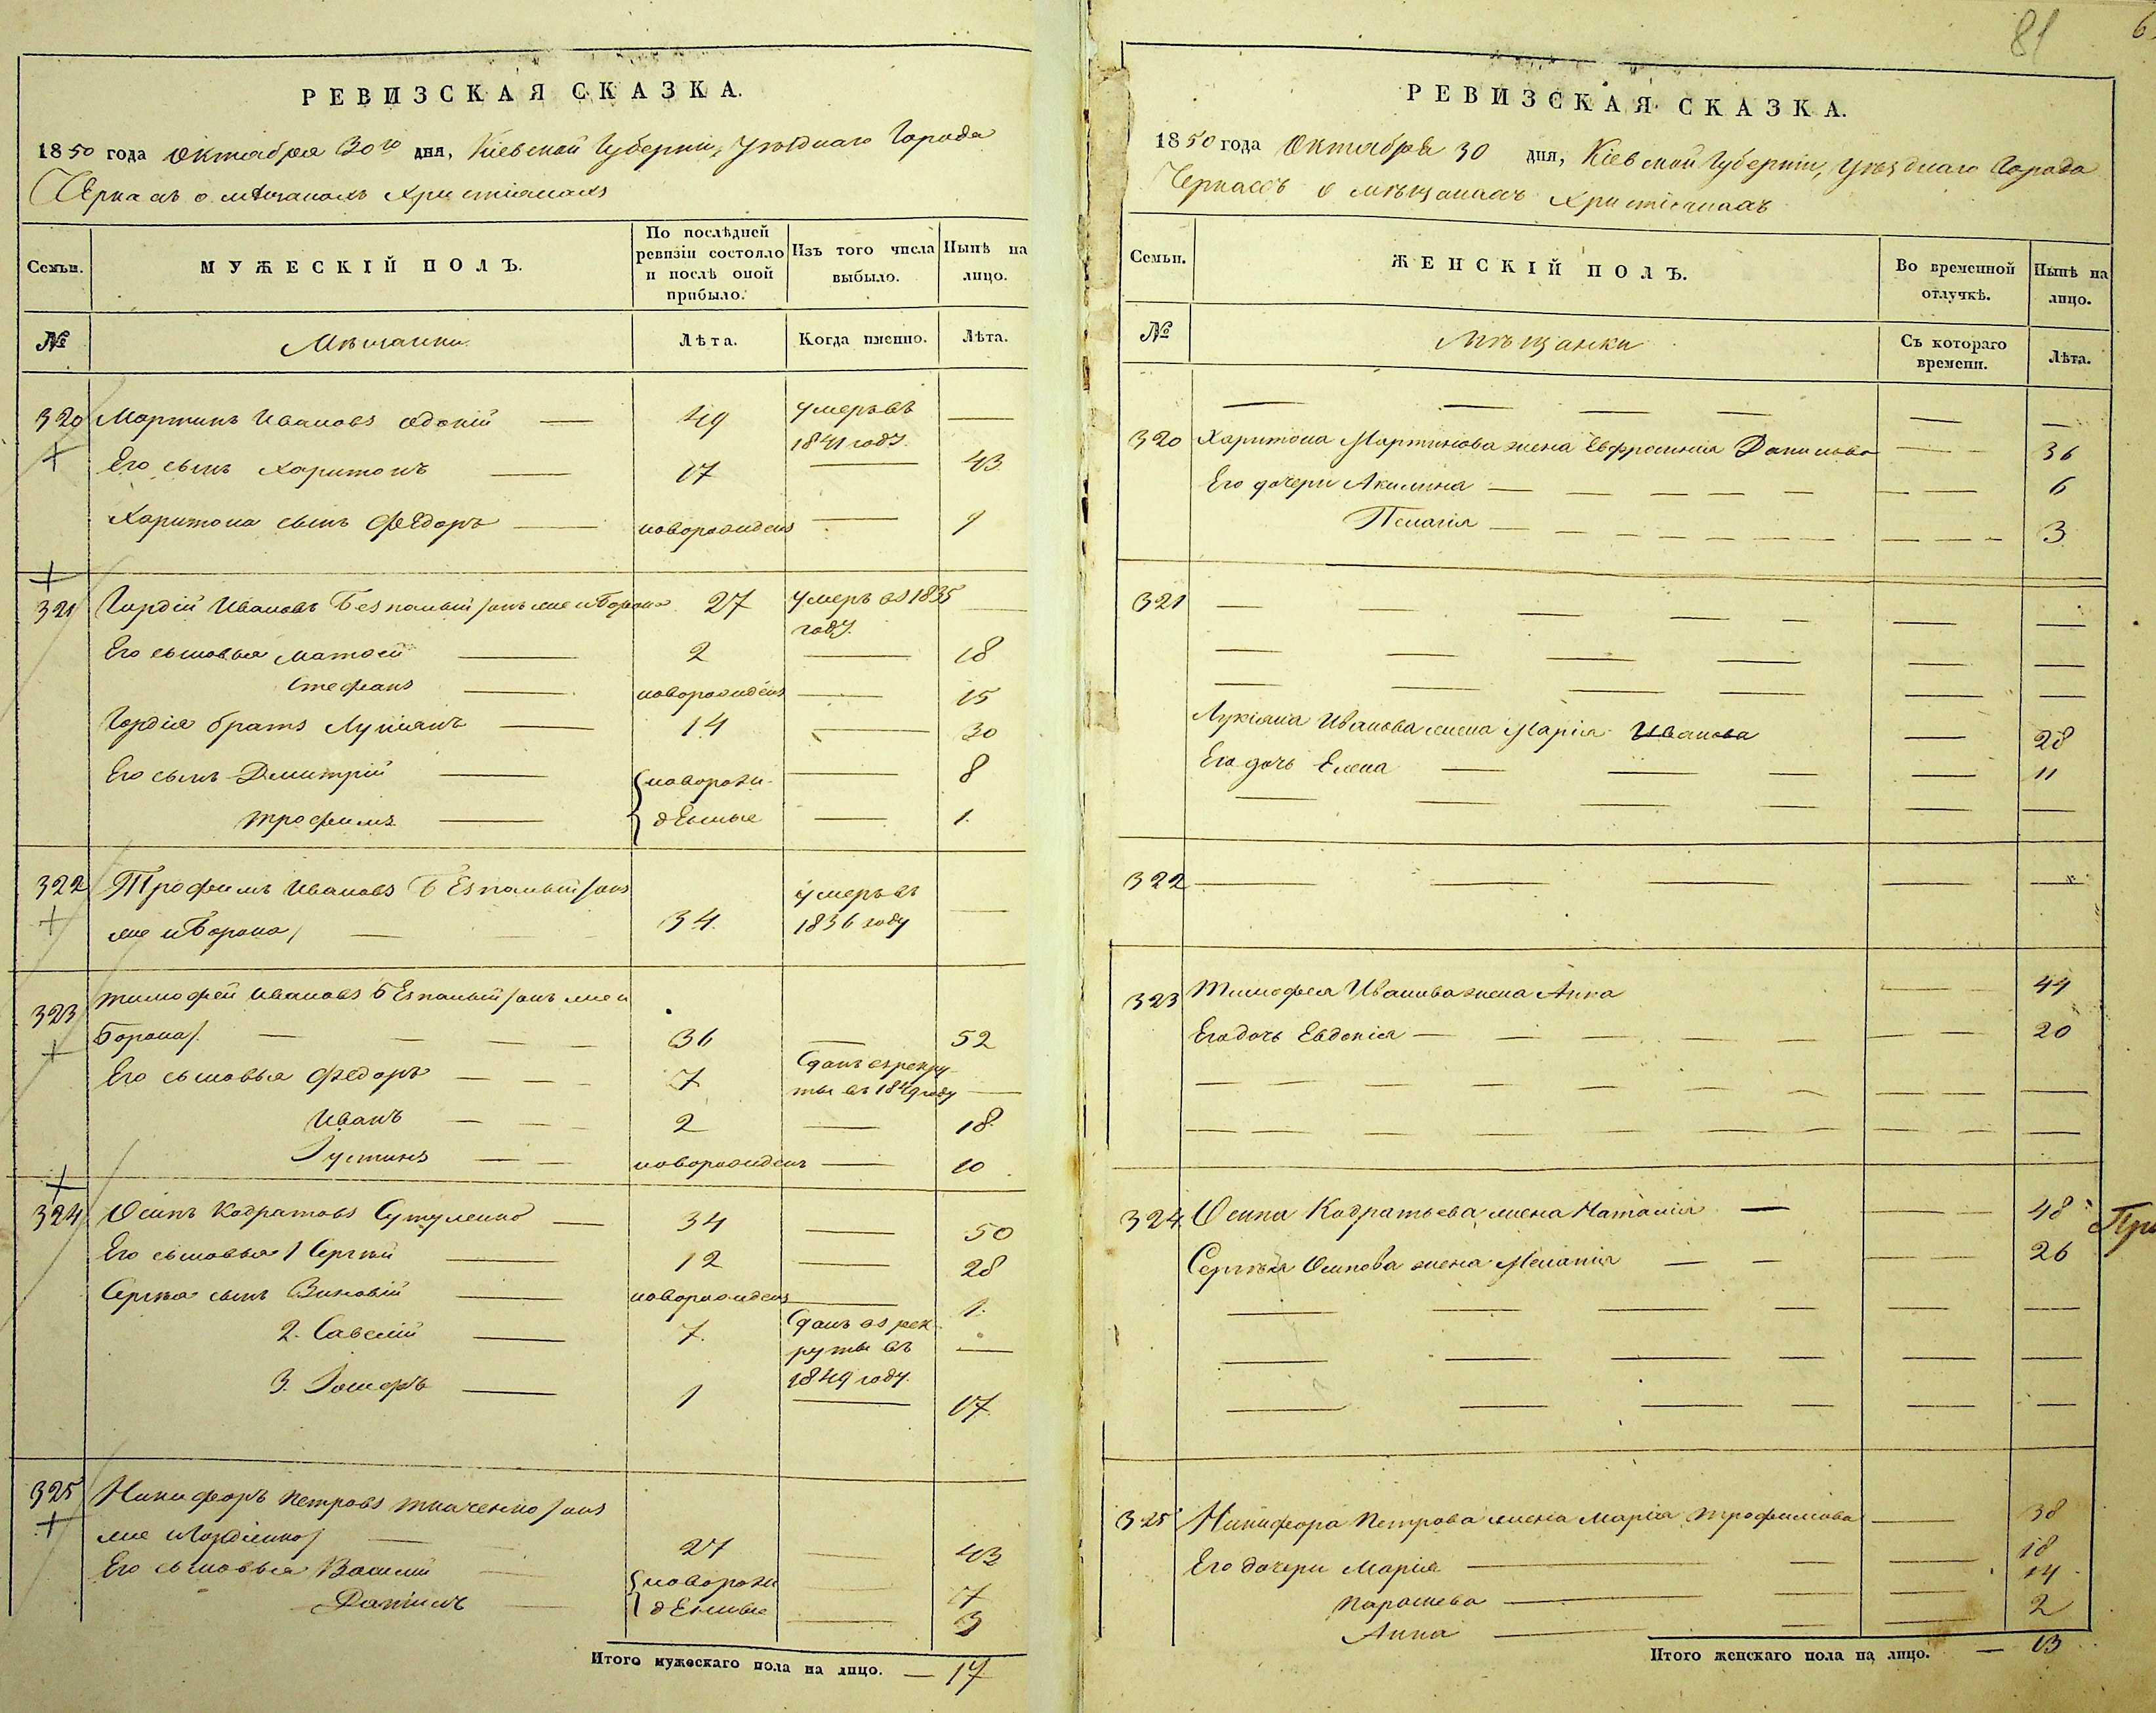 РЕВИЗСКАЯ СКАЗКА.
1850 года Октября 30го дня, Кіевской Губерніи, Уѣзднаго Города
Черкасъ о мѣщанахъ Христіянахъ
Семьи.
МУЖЕСКІЙ ПОЛЪ.
По послѣдней ревизіи состояло и послѣ оной прибыло.
Изъ того числа выбыло.
Нынѣ на лицо.
№
Мѣщане
Лѣта.
Когда именно.
Лѣта.
320 Мартинъ Ивановъ — 49 умеръ въ 1841 году. —
Его сынъ Харитонъ — 17 — 43
Харитона сынъ Федоръ — новорожденъ — 9
321 Гордій Ивановъ Безпалый /онъ же и Борона 27 умеръ въ 1835 году. —
Его сыновья Матвей — 2 — 18
Стефанъ — новорожденъ — 15
Гордія братъ Лукіянъ — 14 — 30
Его сынъ Дмитрій — новорож- — 8
Трофимъ — денные — 1.
322 Трофимъ Ивановъ Безпалый /онъ
же и Борона/ — 34. умеръ въ 1836 году —
323 Тимофей Ивановъ Безпалый /онъ же и
Борона/. — — — — 36 — 52
Его сыновья Федоръ — — — 7 Сданъ въ рекруты въ 1849 году —
Иванъ — — — 2 — 18
Іустинъ — — новорожденъ — 10
324 Осипъ Кодратовъ Сутуленко — 34 — 50
Его сыновья 1 Сергѣй — 12 — 28
Сергѣя сынъ Зиновій — новорожденъ — 1.
2. Савелій — 7. Сданъ въ рекруты въ 1849 году. —
3. Іосифъ — 1 — 17
325 Никифоръ Петровъ Ткаченко /онъ
же и Гордіенко/ — — 27 — 43
Его сыновья Василій — новорож — 7
Даніилъ — денные — 3
Итого мужескаго пола на лицо. — 17
81
РЕВИЗСКАЯ СКАЗКА.
1850 года Октября 30 дня, Кіевской Губерніи, Уѣзднаго Города
Черкасъ о мѣщанахъ Христіянахъ
Семьи.
ЖЕНСКІЙ ПОЛЪ.
Во временной отлучкѣ.
Нынѣ на лицо.
№
Мѣщанки
Съ котораго времени.
Лѣта.
320 Харитона Мартинова жена Евфросинія Данилова — — 36
Его дочери Акилина — — — — — — — 6
Пелагія — — — — — — — 3
321 — — — — — —
Лукіяна Иванова жена Марія Иванова — 28
Его дочь Елена — — — — 11
322 — — — — —
323 Тимофея Иванова жена Анна — — 44
Его дочь Евдокія — — — — — — — 20
324 Осипа Кодратьева жена Наталія — — — 48
Сергѣя Осипова жена Меланія — — — — 26
325 Никифора Петрова жена Марія Трофимова — 38
Его дочери Марія — — — 18
Парасκева — — — 14
Анна — — — 2
Итого женскаго пола на лицо. — 13